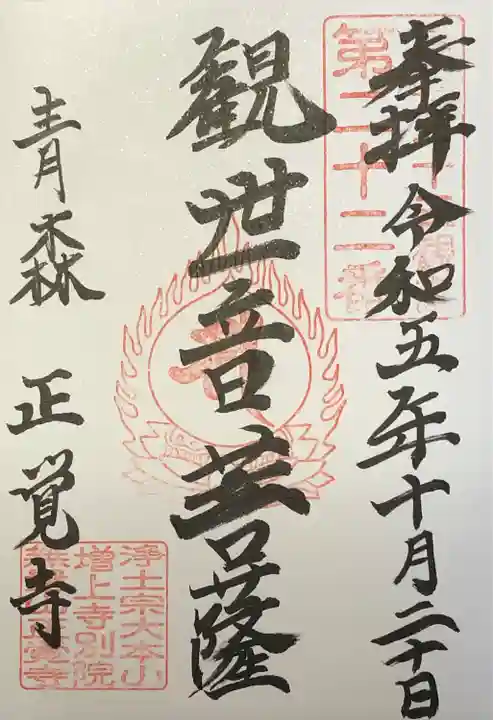 奉拝 令和五年十月二十日
第二十二番
観世音菩薩
青森 正覚寺
浄土宗大本山
増上寺別院
正覚寺